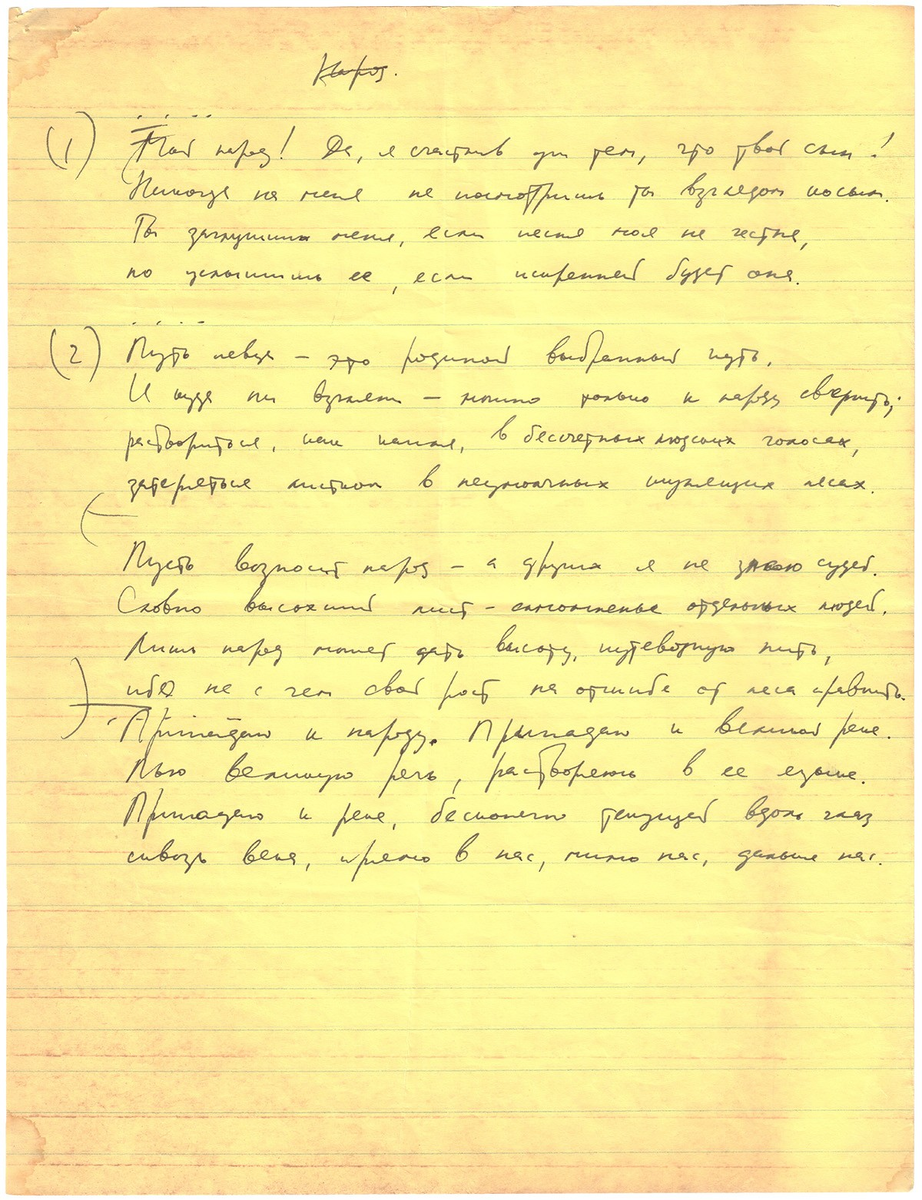 Народ.
(1) Мой народ! Да, я счастлив уж тем, что твой сын!
Никогда на меня не посмотришь ты взглядом косым.
Ты заглушишь меня, если песня моя не честна,
но услышишь ее, если искренней будет она.
(2) Путь певца – это родиной выбранный путь.
И куда ни взгляни – можно только к народу свернуть;
раствориться, как капля, в бессчетных людских голосах,
затеряться листком в неумолчных шумящих лесах.
Пусть возносит народ – а других я не знаю судей.
Словно высохший лист – самомненье отдельных людей.
Лишь народ может дать высоту, путеводную нить,
ибо не с чем свой рост на отшибе от леса сравнить.
Припадаю к народу. Припадаю к великой реке.
Пью великую речь, растворяюсь в ее языке.
Припадаю к реке, бесконечно текущей вдоль глаз
сквозь века, прямо в нас, мимо нас, дальше нас.